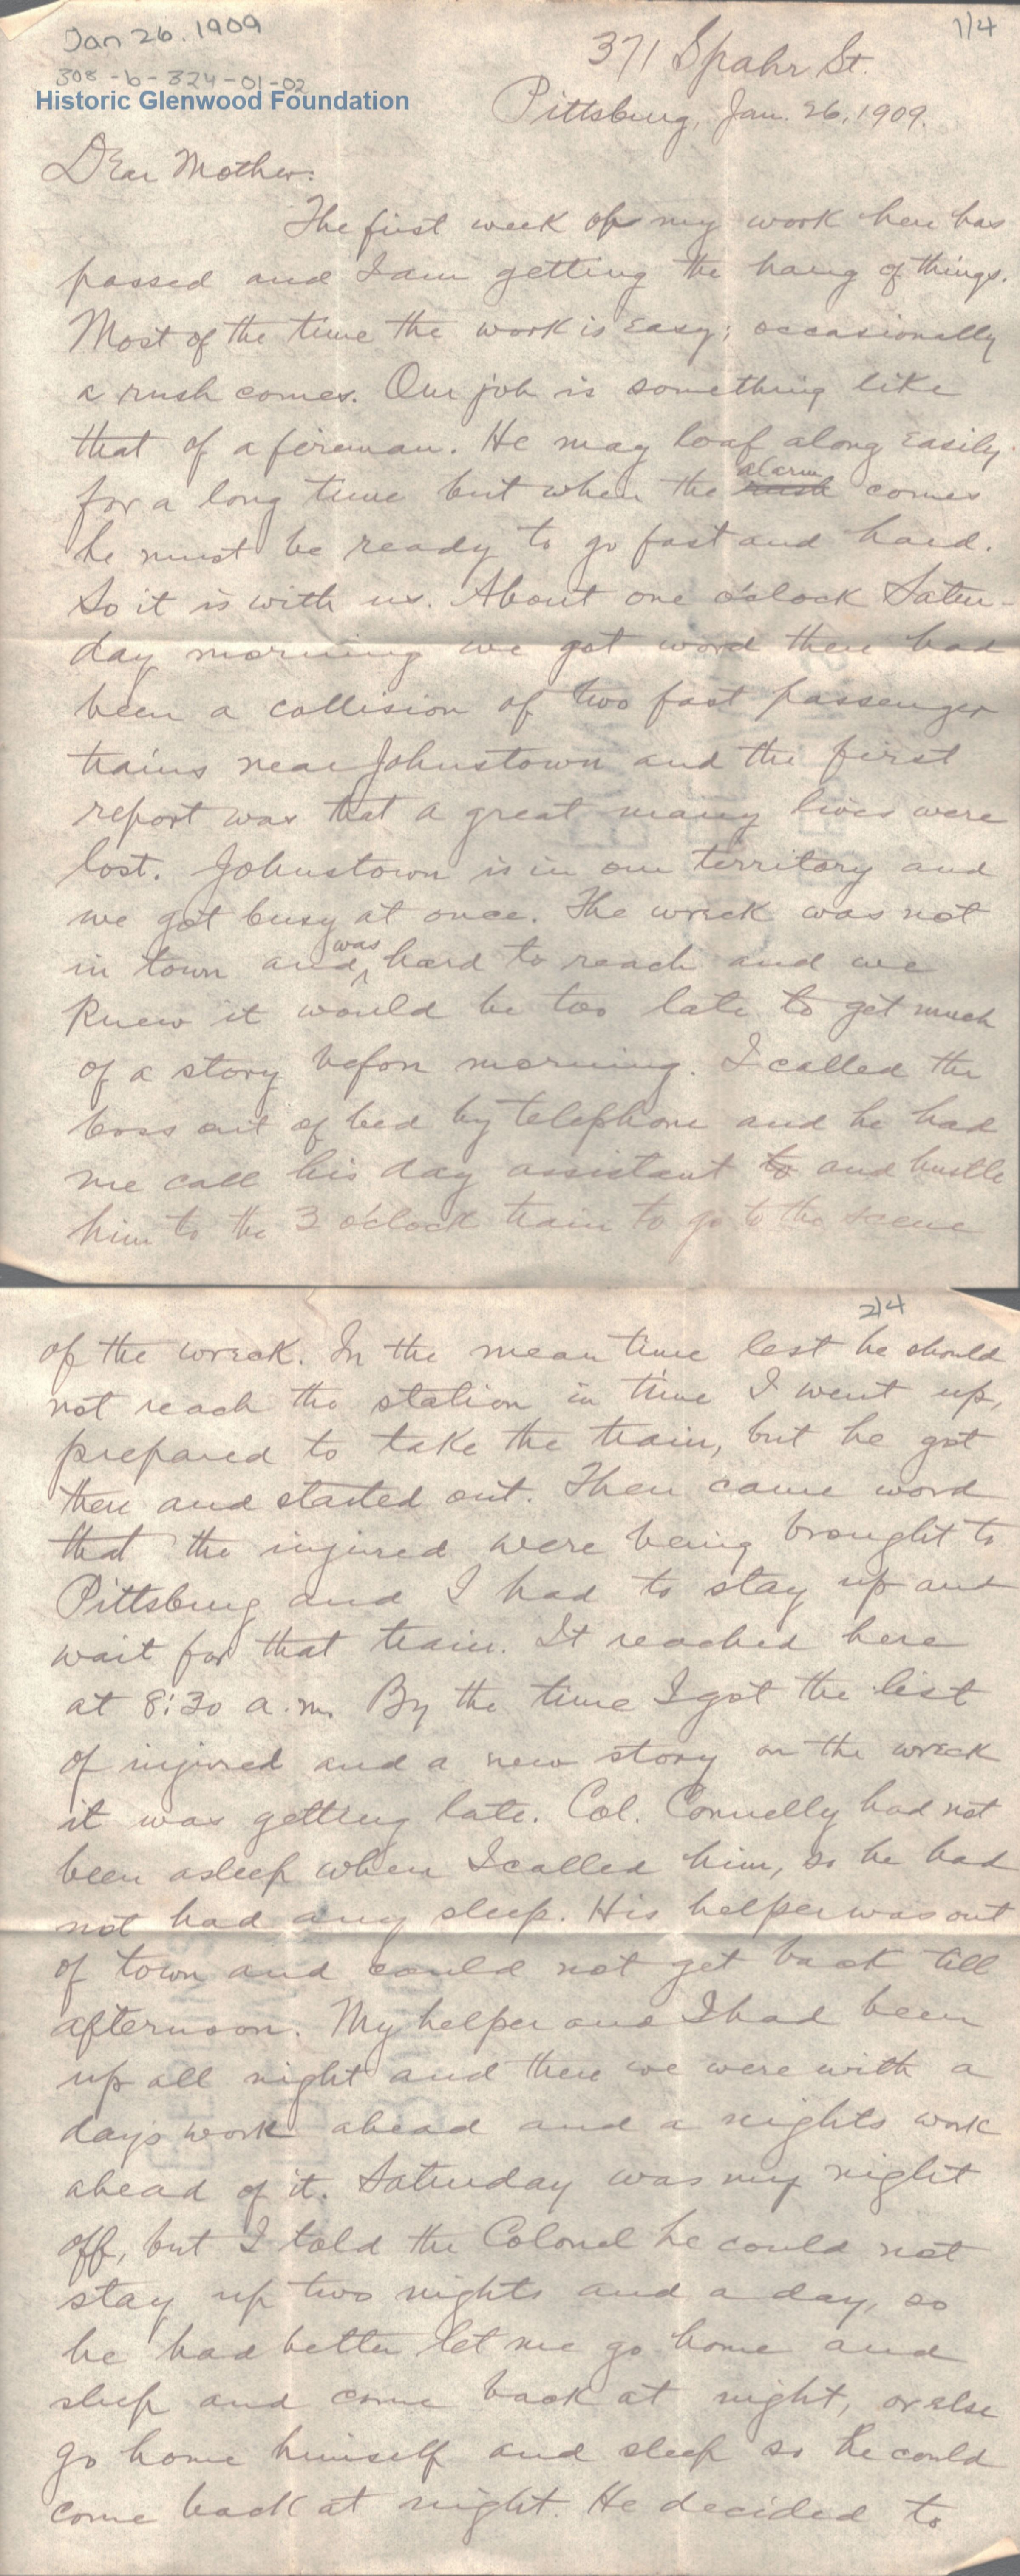 Jan 26. 1909
1/4
308-b-324-01-02
Historic Glenwood Foundation
371 Spahr St.
Pittsburg, Jan. 26, 1909.
Dear Mother:
The first week of my work here has
passed and I am getting the hang of things.
Most of the time the work is easy; occasionally
a rush comes. Our job is something like
that of a fireman. He may loaf along easily
for a long time but when the rush alarm comes
he must be ready to go fast and hard.
So it is with us. About one o'clock Satur-
day morning we got word there had
been a collision of two fast passenger
trains near Johnstown and the first
report was that a great many lives were
lost. Johnstown is in our territory and
we got busy at once. The wreck was not
in town and was hard to reach and we
knew it would be too late to get much
of a story before morning. I called the
boss out of bed by telephone and he had
me call his day assistant to and hustle
him to the 3 o'clock train to go to the scene
2/4
of the wreck. In the mean time lest he should
not reach the station in time I went up,
prepared to take the train, but he got
there and started out. Then came word
that the injured were being brought to
Pittsburg and I had to stay up and
wait for that train. It reached here
at 8:30 a.m. By the time I got the list
of injured and a new story on the wreck
it was getting late. Col. Connelly had not
been asleep when I called him, so he had
not had any sleep. His helper was out
of town and could not get back till
afternoon. My helper and I had been
up all night and there we were with a
days work ahead and a nights work
ahead of it. Saturday was my night
off, but I told the Colonel he could not
stay up two nights and a day, so
he had better let me go home and
sleep and come back at night, or else
go home himself and sleep so he could
come back at night. He decided to